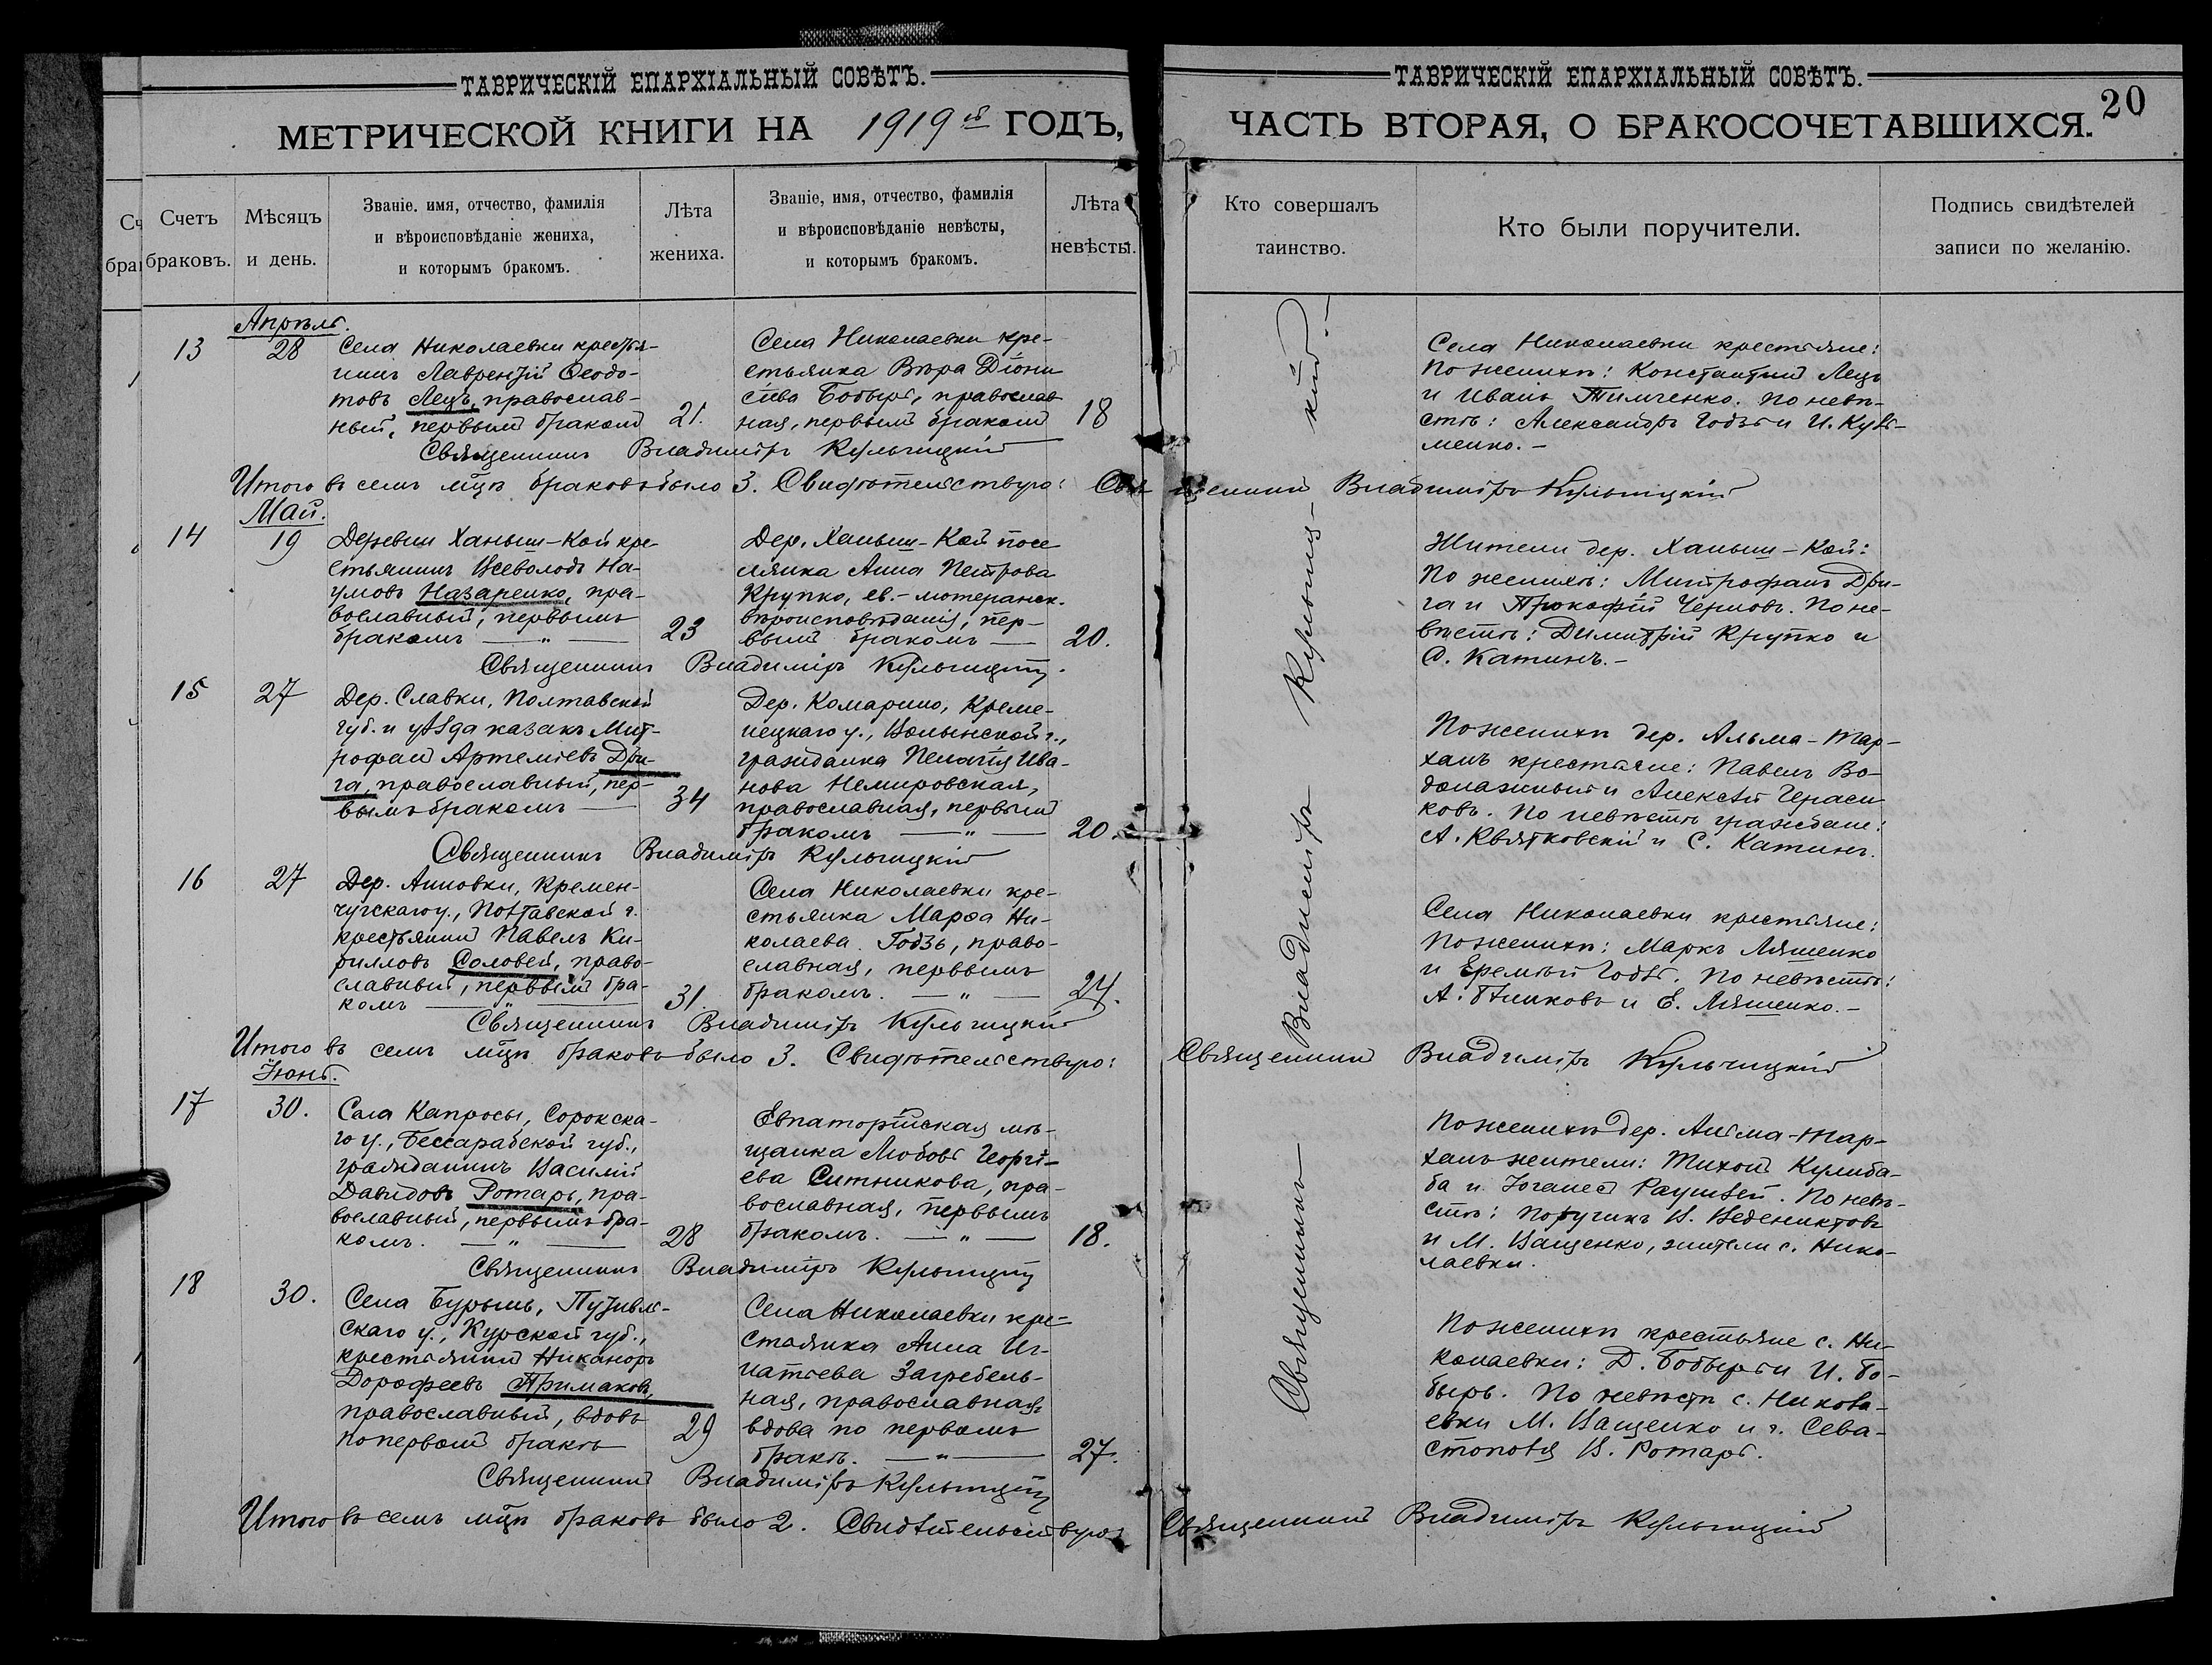 ТАВРИЧЕСКІЙ ЕПАРХІАЛЬНЫЙ СОВѢТЪ.
МЕТРИЧЕСКОЙ КНИГИ НА 1919й ГОДЪ,
Счетъ
браковъ.
Мѣсяцъ
и день.
Званіе. имя, отчество, фамилія
и вѣроисповѣданіе жениха,
и которымъ бракомъ.
Лѣта
жениха.
Званіе, имя, отчество, фамилія
и вѣроисповѣданіе невѣсты,
и которымъ бракомъ.
Лѣта
невѣсты.
ТАВРИЧЕСКІЙ ЕПАРХІАЛЬНЫЙ СОВѢТЪ.
20
ЧАСТЬ ВТОРАЯ, О БРАКОСОЧЕТАВШИХСЯ.
Кто совершалъ
таинство.
Кто были поручители.
Подпись свидѣтелей
записи по желанію.
Апрѣль.
13
28
Села Николаевки крестья-
нинъ Лаврентій Ѳеодо-
товъ Лецъ, православ-
ный, первымъ бракомъ
21.
Села Николаевки кре-
стьянка Вѣра Діони
сіева Бобырь, православ
ная, первымъ бракомъ
18
Села Николаевки крестьяне:
По женихѣ: Константинъ Лецъ
и Иванъ Тимченко. По невѣ-
стѣ: Александръ Годзь и И. Кузь-
менко.-
Священникъ Владиміръ Кульчицкій
Итого въ семъ мцѣ браковъ было 3. Свидѣтельствую: Священникъ Владиміръ Кульчицкій
Май.
14
19
Деревни Ханыш-Кой кре-
стьянинъ Всеволодъ На-
умовъ Назаренко, пра-
вославный, первымъ
бракомъ — " —
23
Дер. Ханыш-Кой посе
лянка Анна Петрова
Крупко, ев.-лютеранск.
вѣроисповѣданія, пер-
вымъ бракомъ —
20.
Жители дер. Ханыш-Кой:
По женихѣ: Митрофанъ Дри-
га и Прокофій Черновъ. По не-
вѣстѣ: Димитрій Крупко и
С. Катинъ.-
Священникъ Владиміръ Кульчицкій.
15
27
Дер. Славки, Полтавской
губ. и уѣзда казакъ Мит-
рофанъ Артеміевъ Дри-
га, православный, пер-
вымъ бракомъ —
34
Дер. Комарино, Креме-
нецкаго у., Волынской г.,
гражданка Пелагія Ива-
нова Немировская,
православная, первымъ
бракомъ — " —
20.
По женихѣ дер. Альма-Тар-
ханъ крестьяне: Павелъ Во-
долажный и Алексѣй Гераси
ковъ. По невѣстѣ граждане:
А. Квятковскій и С. Катинъ.
Священникъ Владиміръ Кульчицкій
16
27
Дер. Анновки, Кремен-
чугскаго у., Полтавской г.
крестьянинъ Павелъ Ки-
рилловъ Соловей, право-
славный, первымъ бра-
комъ — " —
31.
Села Николаевки кре-
стьянка Марѳа Ни-
колаева Годзь, право-
славная, первымъ
бракомъ. — " —
24.
Села Николаевки крестьяне:
По женихѣ: Маркъ Ляшенко
и Еремѣй Годзь. По невѣстѣ:
А. и Е. Ляшенко.-
Священникъ Владиміръ Кульчицкій
Итого въ семъ мцѣ браковъ было 3. Свидѣтельствую: Священникъ Владиміръ Кульчицкій
Іюнь.
17
30.
Села Капросы, Сорокска-
го у., Бессарабской губ.,
гражданинъ Василій
Давидовъ Ротарь, пра-
вославный, первымъ бра-
комъ. — " —
28
Евпаторійская мѣ-
щанка Любовь Георгі-
ева Ситникова, пра-
вославная, первымъ
бракомъ. — " —
18.
По женихѣ дер. Альма-Тар-
ханъ жители: Тихонъ Кулиба-
ба и Іоганесъ . По невѣ-
стѣ: поручикъ В. Веденктовъ
и М. Ващенко, жители с. Нико-
лаевки.
Священникъ Владиміръ Кульчицкій
18
30.
Села Бурынь, Путивль-
скаго у., Курской губ.,
крестьянинъ Никаноръ
Дорофеевъ Примаковъ,
православный, вдовъ
по первомъ бракѣ
29
Села Николаевки кре-
стьянка Анна Иг-
натьева Загребель-
ная, православная,
вдова по первомъ
бракѣ. — " —
27.
По женихѣ крестьяне с. Ни-
колаевки: Д. Бобырь и И. Бо-
бырь. По невѣстѣ с. Никола-
евки М. Ващенко и г. Сева-
стополя В. Ротарь.
Священникъ Владиміръ Кульчицкій
Итого въ семъ мцѣ браковъ было 2. Свидѣтельствую: Священникъ Владиміръ Кульчицкій
Священникъ — Владиміръ — Кульчиц-кій.-